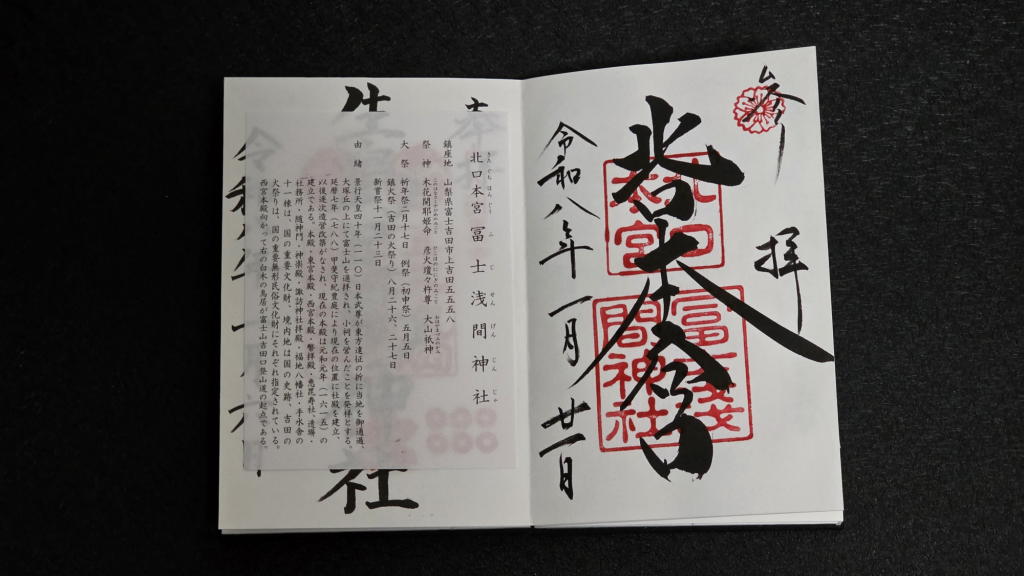 参拝
北口本宮
北口本宮
冨士浅間神社
令和八年一月廿一日
きたぐちほんぐう ふじせんげんじんじゃ
北口本宮冨士浅間神社
鎮座地 山梨県富士吉田市上吉田五五五八
祭神 木花開耶姫命 彦火瓊々杵尊 大山祇神
大祭 祈年祭二月十七日 例祭(初申祭)五月五日
鎮火祭(吉田の火祭り)八月二十六、二十七日
新嘗祭十一月二十三日
由緒 景行天皇四十年(一一〇)日本武尊が東方遠征の折に当地を御通過、
大塚丘の上にて富士山を遥拝され、小祠を営んだことを発祥とする。
延暦七年(七八八)甲斐守紀豊庭により現在の位置に社殿を建立、
以後逐次造営改築がなされ、現在の本殿は元和元年(一六一五)の
建立である。本殿・東宮本殿・西宮本殿・幣拝殿・恵毘寿社、透塀・
社務所・随神門・神楽殿・諏訪神社拝殿・福地八幡社・手水舎の
十一棟は、国の重要文化財、境内地は国の史跡、吉田の
火祭りは、国の重要無形民俗文化財にそれぞれ指定されている。
西宮本殿向かって右の白木の鳥居が富士山吉田口登山道の起点である。
生
社